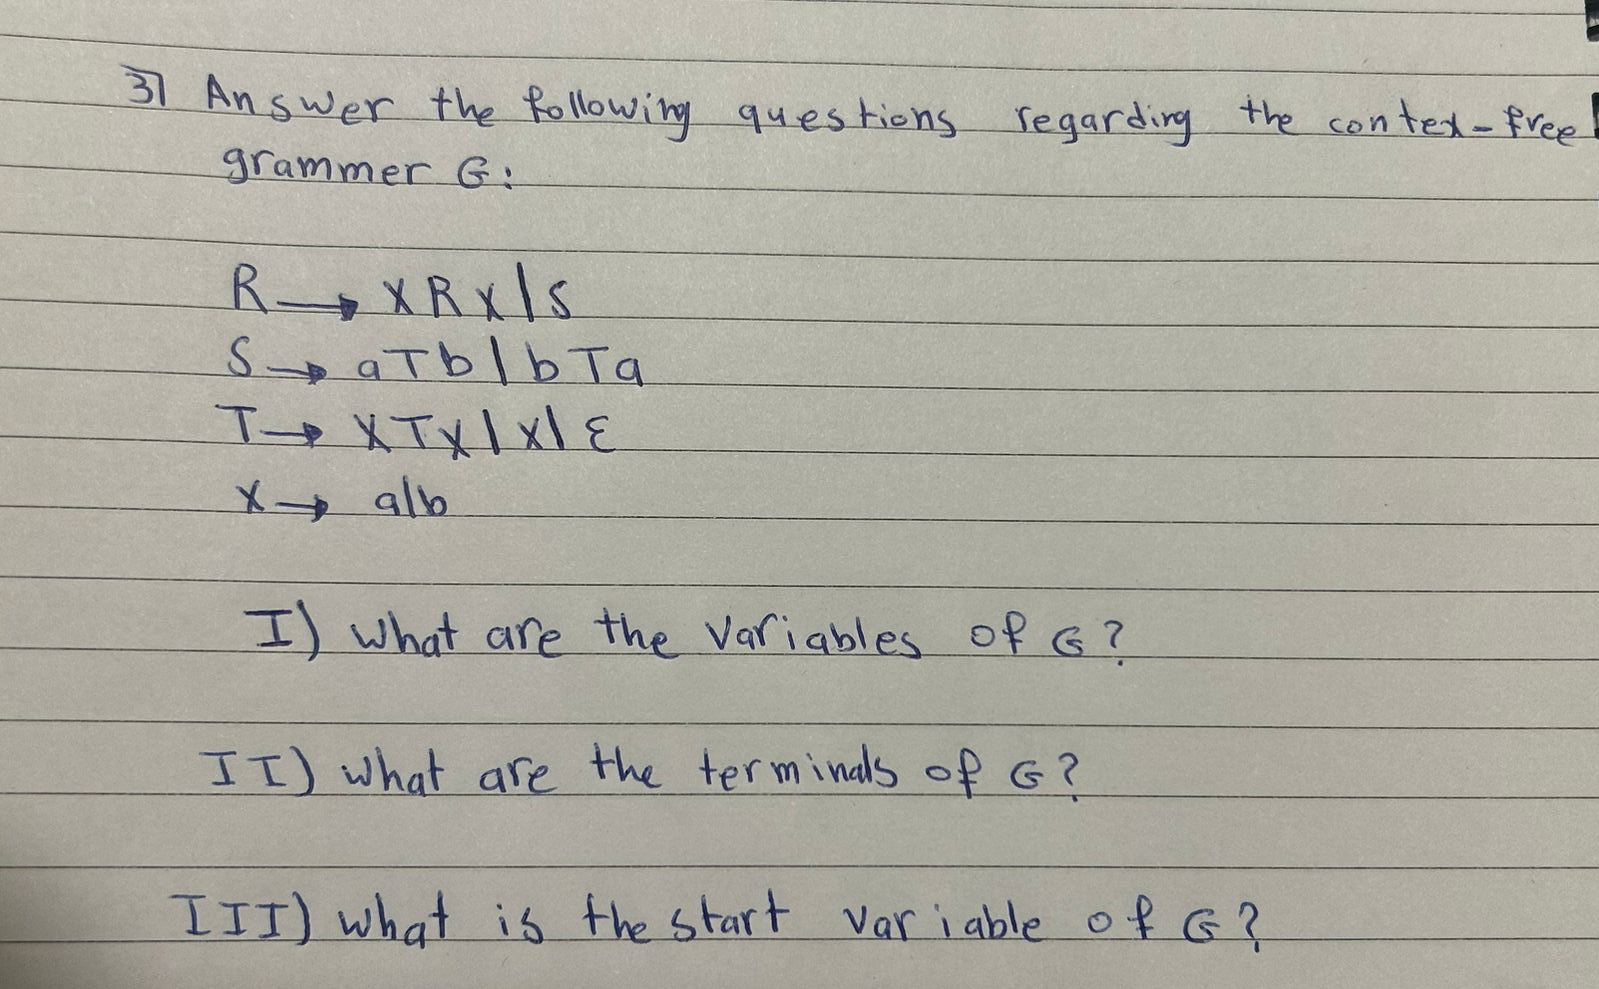 3) Answer the following questions regarding the contex-free
grammer G:
R → X R X | S
S → aTb | bTa
T → XTX | X | ε
X → a|b
I) What are the Variables of G?
II) what are the terminals of G?
III) what is the start variable of G?